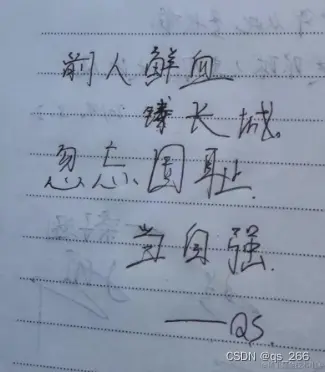 前人鲜血
铸长城。
勿忘国耻
当自强.
——QS.
CSDN @qs_266